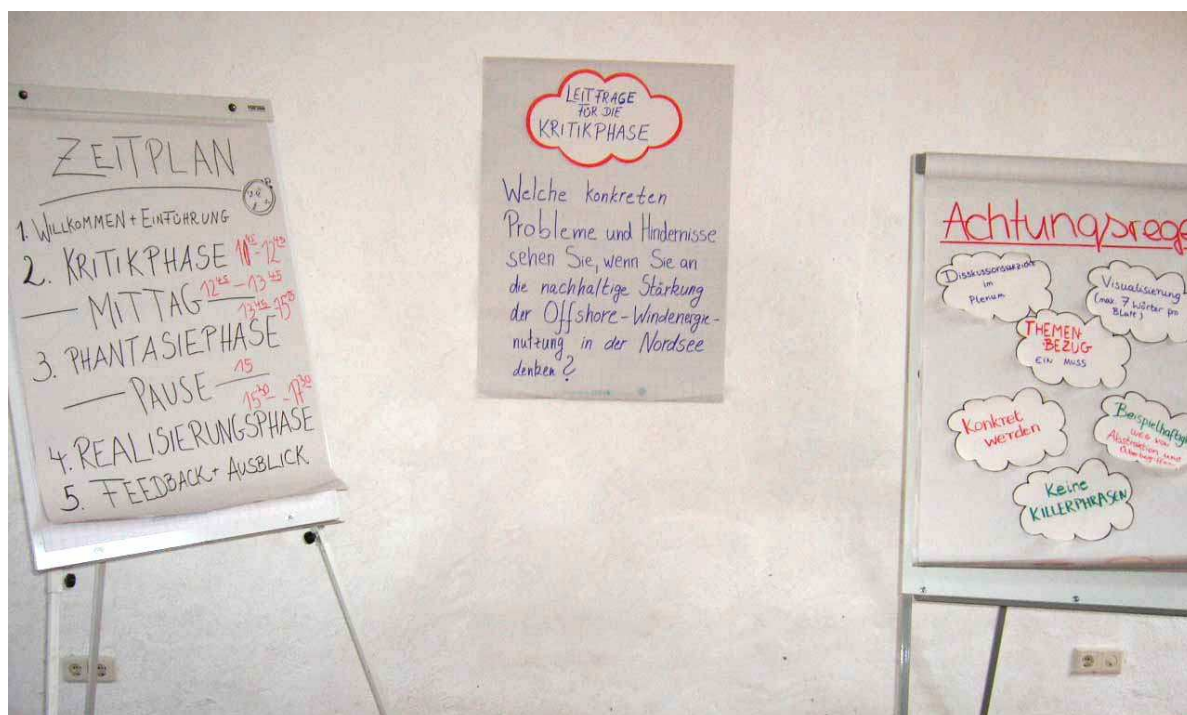 ZEITPLAN
1. WILLKOMMEN + EINFÜHRUNG
2. KRITIKPHASE - 12⁴⁵
— MITTAG — 12⁴⁵ - 13⁴⁵
13⁴⁵ -
3. PHANTASIEPHASE
— PAUSE — 15
15³⁰ - 17³⁰
4. REALISIERUNGSPHASE
5. FEEDBACK + AUSBLICK
LEITFRAGE
FÜR DIE
KRITIKPHASE
Welche konkreten
Probleme und Hindernisse
sehen Sie, wenn Sie an
die nachhaltige Stärkung
der Offshore-Windenergie-
nutzung in der Nordsee
denken?
Achtungsrege
im
Plenum
Visualisierung
(max. 7 Wörter pro
Blatt)
THEMEN-
BEZUG
EIN MUSS
Konkret
werden
Beispielhaftig
weg von
Abstraktion und
Keine
KILLERPHRASEN